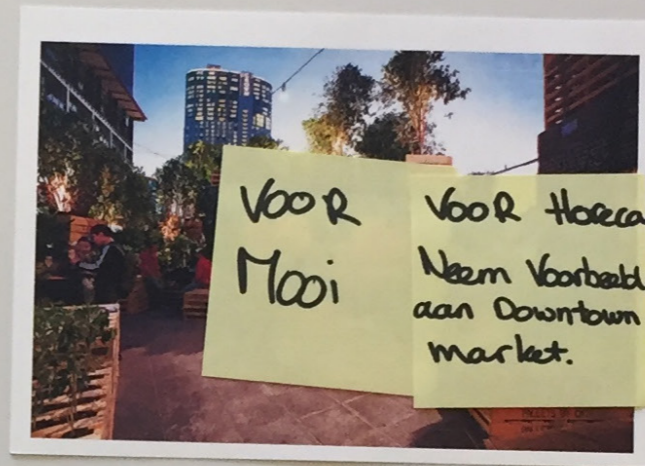 VOOR
Mooi
VOOR Horeca
Neem Voorbeeld
aan Downtown
market.